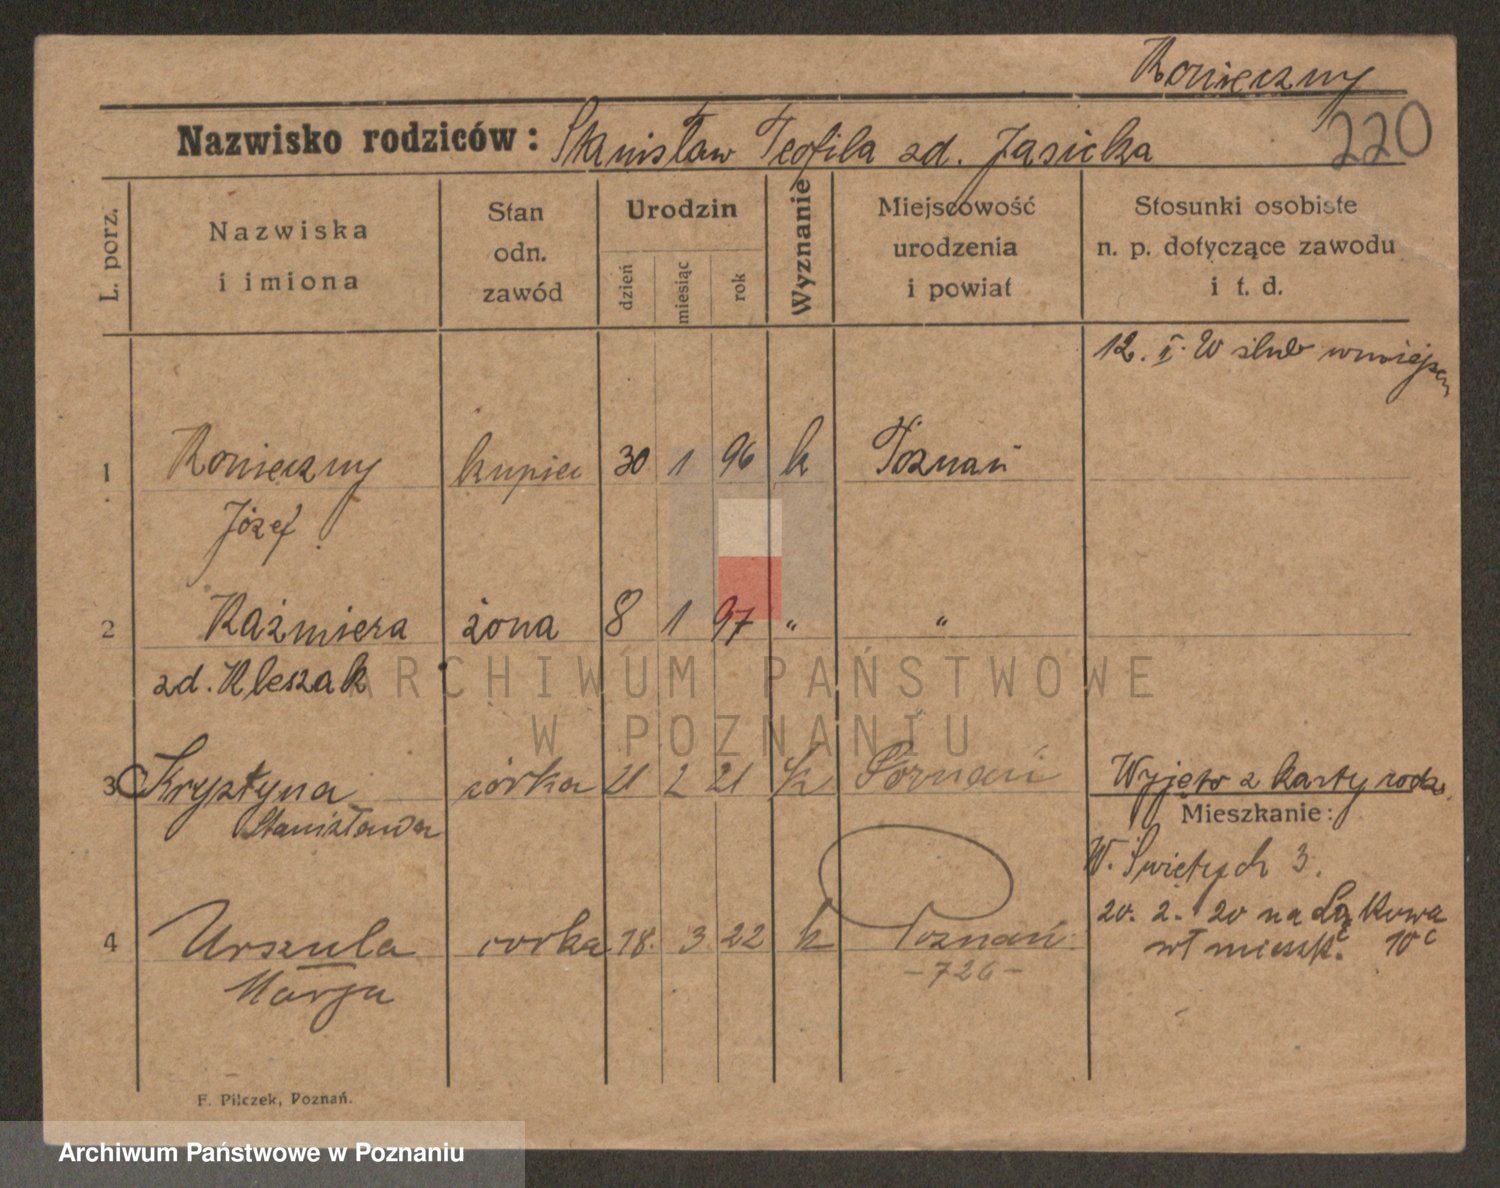 Konieczny
220
Nazwisko rodziców: Stanisław Teofila zd. Jasicka
L. porz.
Nazwiska
i imiona
Stan
odn.
zawód
Urodzin
dzień
miesiąc
rok
Wyznanie
Miejscowość
urodzenia
i powiat
Stosunki osobiste
n. p. dotyczące zawodu
i t. d.
12. II. ślub
1 Konieczny kupiec 30 1 96 k Poznań
Józef
2 Kaźmiera żona 8 1 97 " "
zd. Kleszak
ARCHIWUM PAŃSTWOWE
W POZNANIU
3 Krystyna córka 21 2 21 k Poznań Wyjęto z karty rodz.
Stanisława
Mieszkanie:
W. Świętych 3.
20. 2. 20 na Łąkowa
4 Urszula corka 18. 3 22 k Poznań 10
Marja
-726-
F. Pilczek, Poznań.
Archiwum Państwowe w Poznaniu